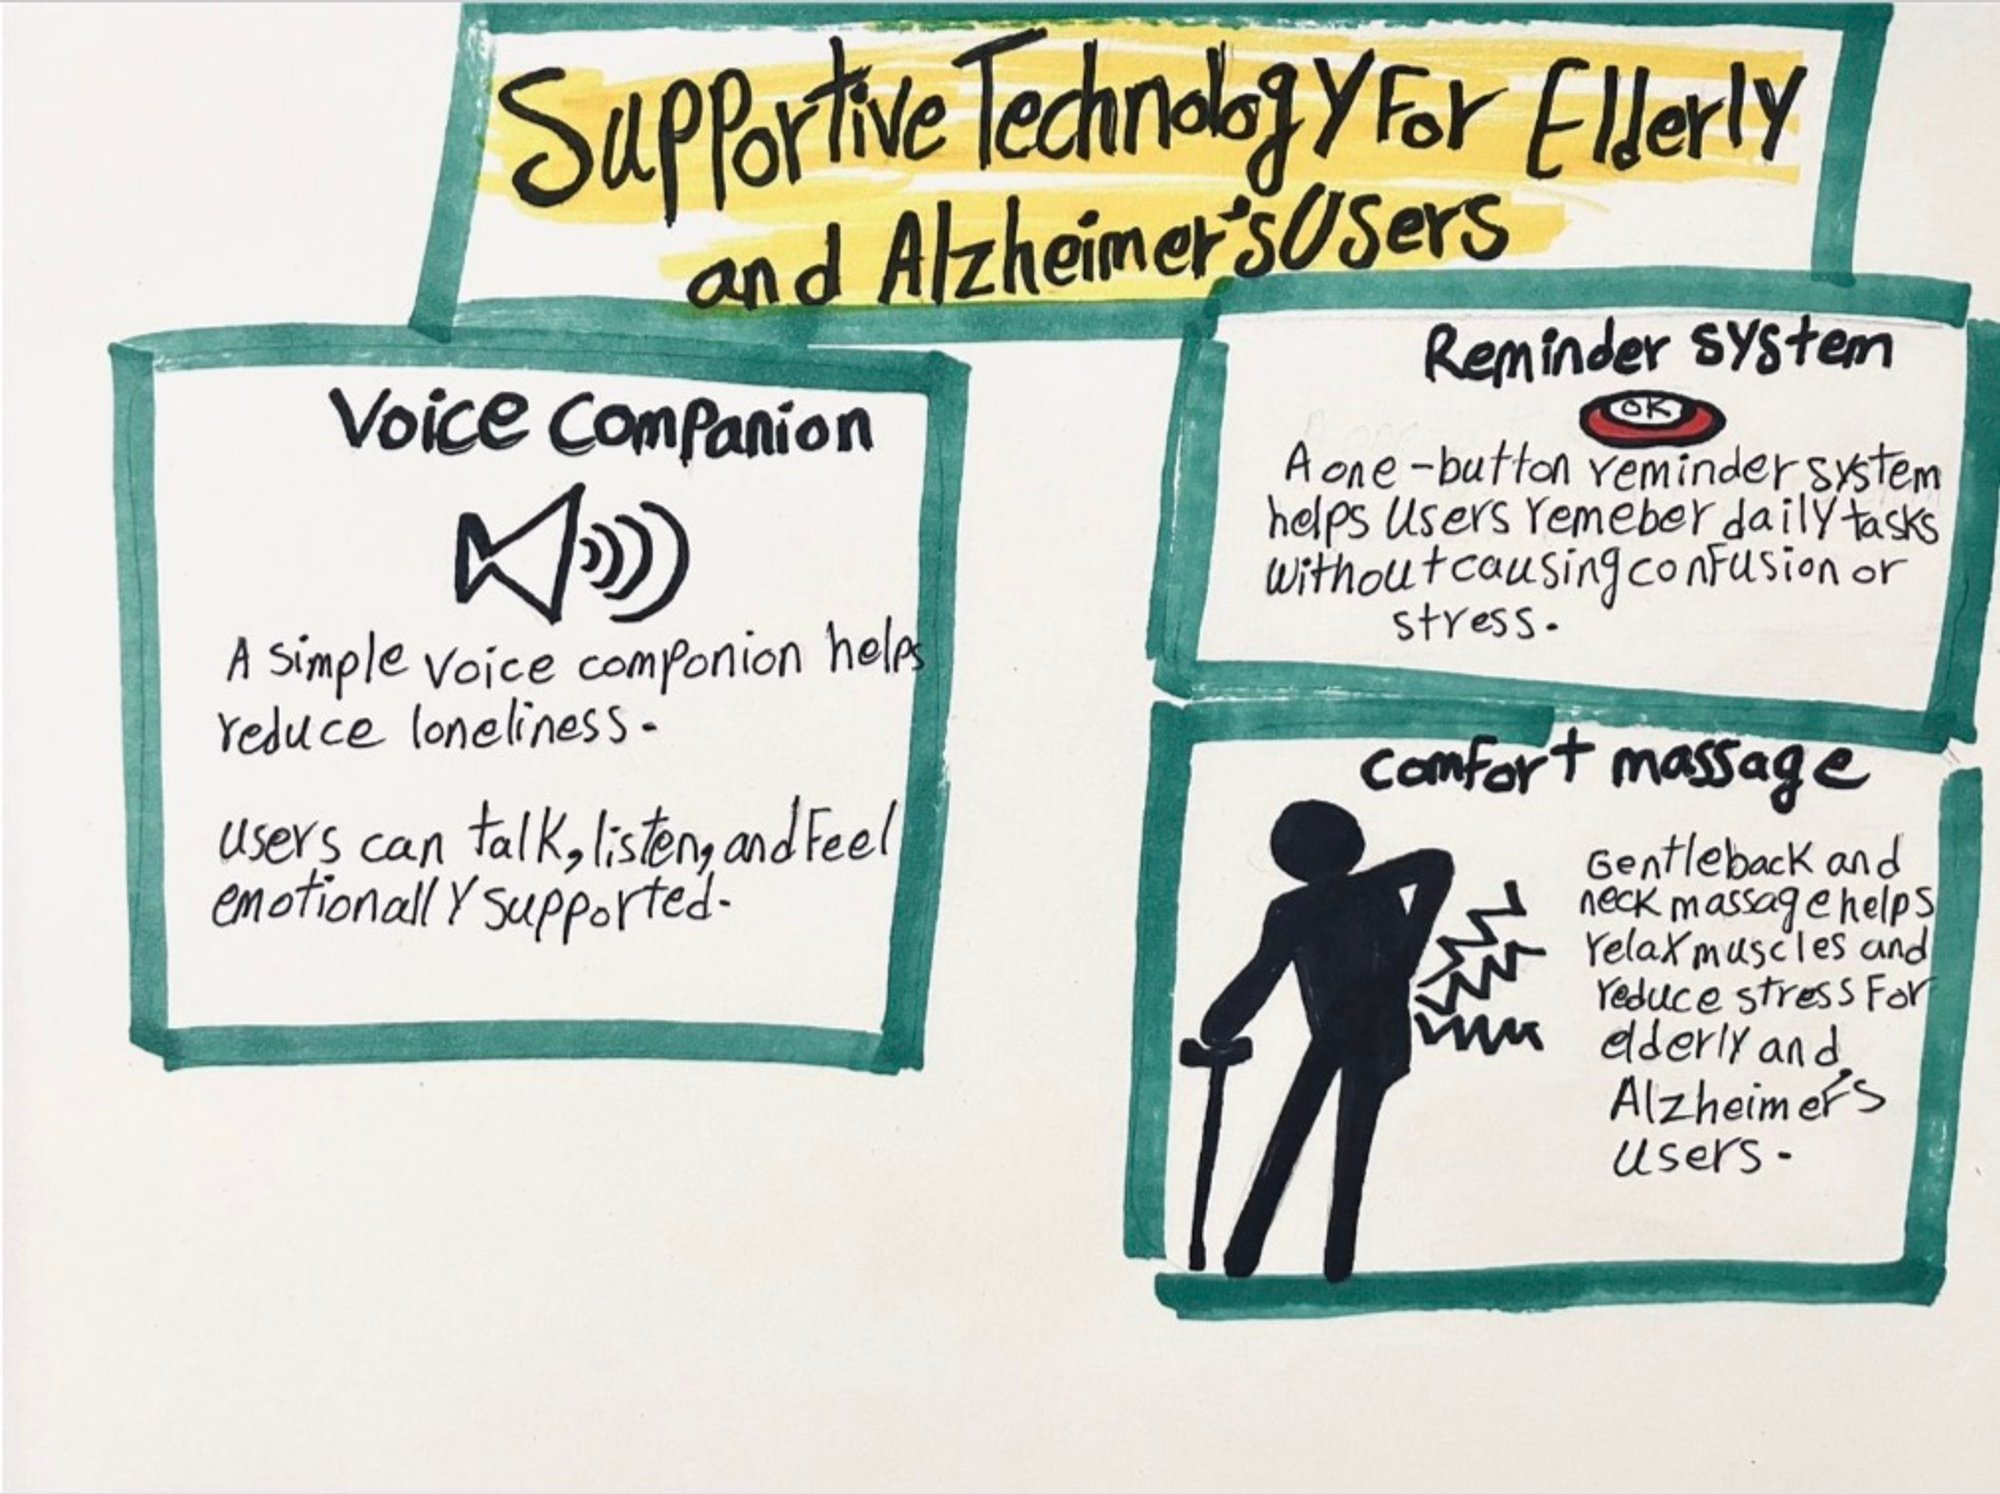 Supportive Technology For Elderly
and Alzheimer's Users
Voice Companion
A simple voice componion helps
reduce loneliness.
Users can talk, listen, and Feel
emotionally supported.
Reminder system
OK
A one-button reminder system
helps users remeber daily tasks
without causing confusion or
stress.
comfort massage
Gentle back and
neck massage helps
relax muscles and
reduce stress For
elderly and
Alzheimer's
users.